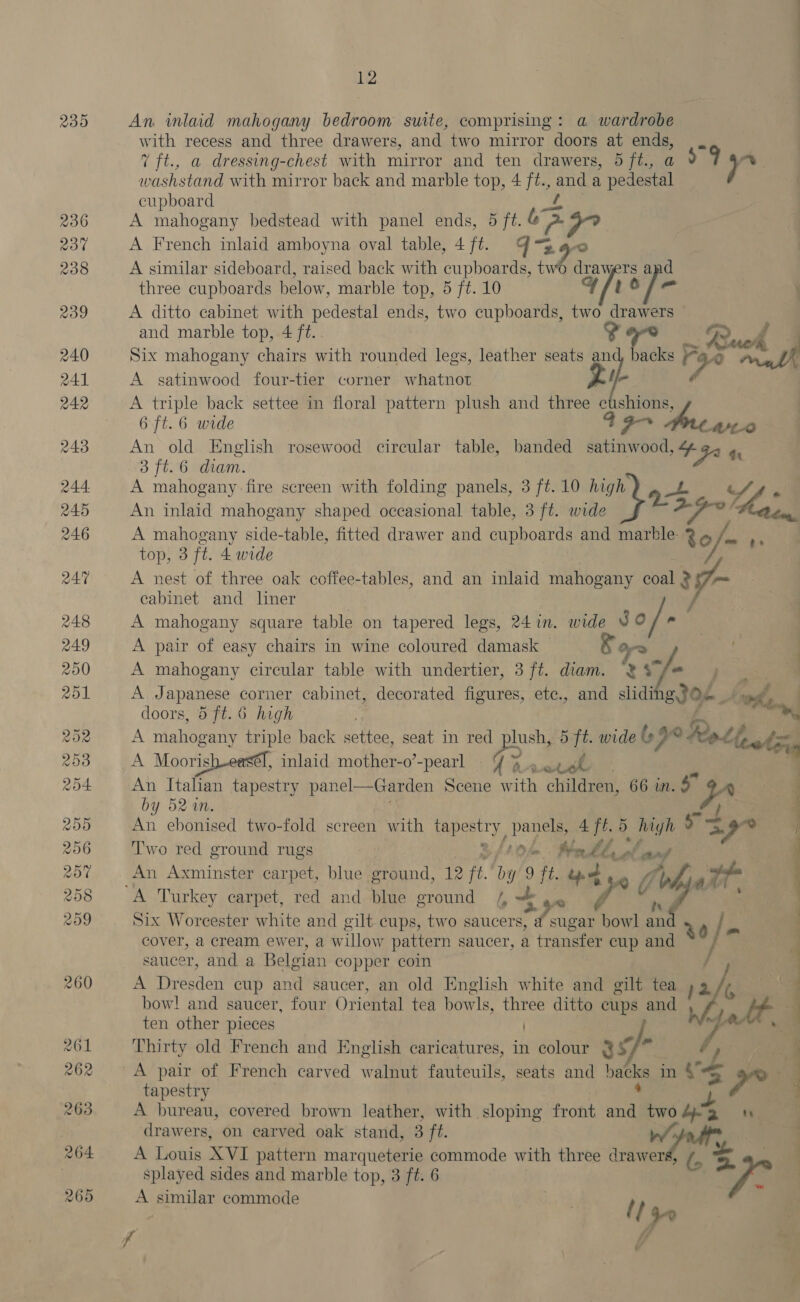 12
235 An inlaid mahogany bedroom suite, comprising: a wardrobe
with recess and three drawers, and two mirror doors at ends,
7 ft., a dressing-chest with mirror and ten drawers, 5 ft., a
washstand with mirror back and marble top, 4 ft., and a pedestal
cupboard
236 A mahogany bedstead with panel ends, 5 ft.
237 A French inlaid amboyna oval table, 4 ft.
238 A similar sideboard, raised back with cupboards, two drawers and
three cupboards below, marble top, 5 ft. 10
239 A ditto cabinet with pedestal ends, two cupboards, two drawers
and marble top, 4 ft.
240 Six mahogany chairs with rounded legs, leather seats and backs
241 A satinwood four-tier corner whatnot
242 A triple back settee in floral pattern plush and three cushions,
6 ft. 6 wide
243 An old English rosewood circular table, banded satinwood,
3 ft. 6 diam.
244 A mahogany fire screen with folding panels, 3 ft. 10 high
245 An inlaid mahogany shaped occasional table, 3 ft. wide
246 A mahogany side-table, fitted drawer and cupboards and marble
top, 3 ft. 4 wide
247 A nest of three oak coffee-tables, and an inlaid mahogany coal
cabinet and liner
248 A mahogany square table on tapered legs, 24 in. wide 30/-
249 A pair of easy chairs in wine coloured damask
250 A mahogany circular table with undertier, 3 ft. diam.
251 A Japanese corner cabinet, decorated figures, etc., and sliding
doors, 5 ft. 6 high
252 A mahogany triple back settee, seat in red plush, 5 ft. wide
253 A Moorish easel, inlaid mother-o'-pearl
254 An Italian tapestry panel—Garden Scene with children, 66 in.
by 52 in.
255 An ebonised two-fold screen with tapestry panels, 4 ft. 5 high
256 Two red ground rugs
257 An Axminster carpet, blue ground, 12 ft. by 9 ft. Wyatt
258 A Turkey carpet, red and blue ground
259 Six Worcester white and gilt cups, two saucers, a sugar bowl and
cover, a cream ewer, a willow pattern saucer, a transfer cup and
saucer, and a Belgian copper coin
260 A Dresden cup and saucer, an old English white and gilt tea
bowl and saucer, four Oriental tea bowls, three ditto cups and
ten other pieces Wyatt
261 Thirty old French and English caricatures, in colour 35/-
262 A pair of French carved walnut fauteuils, seats and backs in
tapestry
263 A bureau, covered brown leather, with sloping front and two
drawers, on carved oak stand, 3 ft. Wyatt
264 A Louis XVI pattern marqueterie commode with three drawers,
splayed sides and marble top, 3 ft. 6
265 A similar commode